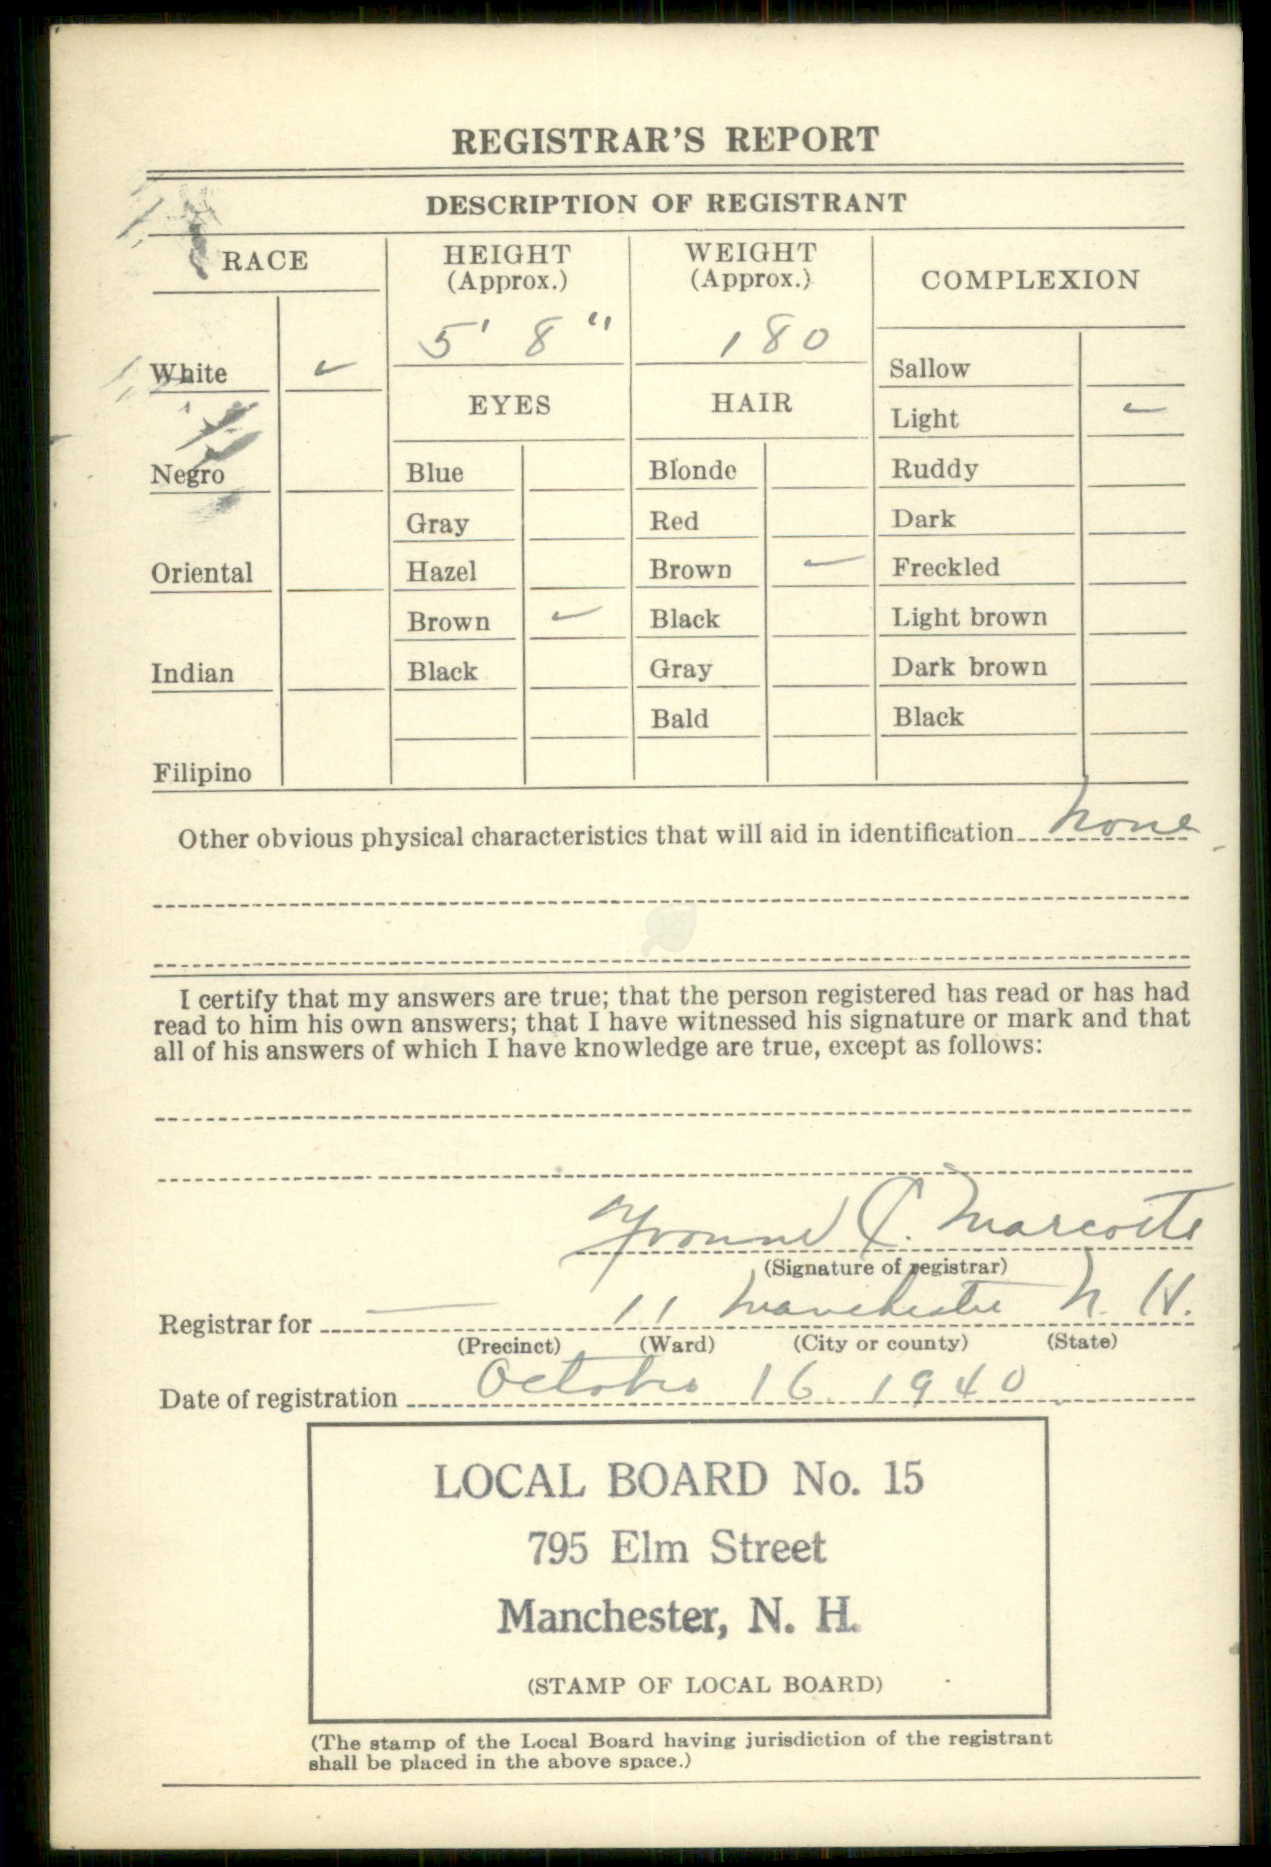 REGISTRAR'S REPORT
DESCRIPTION OF REGISTRANT
RACE
HEIGHT
(Approx.)
WEIGHT
(Approx.)
COMPLEXION
5' 8"
180
White ✓
Sallow
EYES
HAIR
Light ✓
Negro
Blue
Blonde
Ruddy
Gray
Red
Dark
Oriental
Hazel
Brown ✓
Freckled
Brown ✓
Black
Light brown
Indian
Black
Gray
Dark brown
Bald
Black
Filipino
Other obvious physical characteristics that will aid in identification None
I certify that my answers are true; that the person registered has read or has had
read to him his own answers; that I have witnessed his signature or mark and that
all of his answers of which I have knowledge are true, except as follows:
Yvonne C. Marcotte
(Signature of registrar)
Registrar for — 11 Manchester N. H.
(Precinct) (Ward) (City or county) (State)
Date of registration October 16, 1940
LOCAL BOARD No. 15
795 Elm Street
Manchester, N. H.
(STAMP OF LOCAL BOARD)
(The stamp of the Local Board having jurisdiction of the registrant
shall be placed in the above space.)